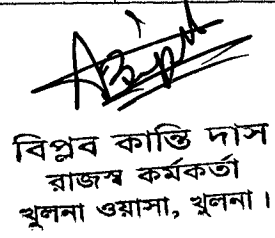 বিপ্লব কান্তি দাস
রাজস্ব কর্মকর্তা
খুলনা ওয়াসা, খুলনা।